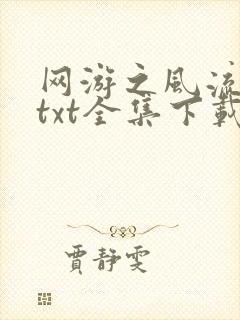 网游之风流
txt全集下载
贾静雯